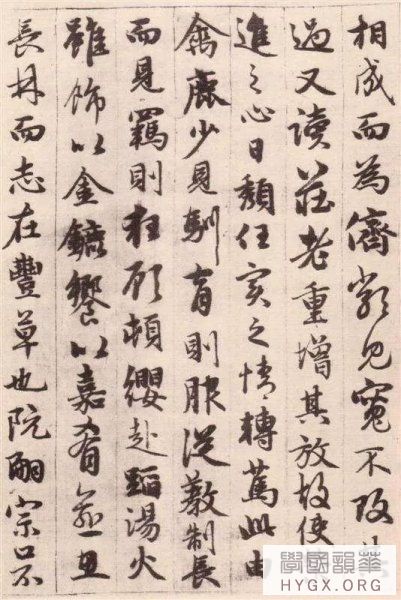 相成而為儕類見寬不攻
過又讀莊老重增其放故使
進之心日頹任實之情轉篤此由
禽鹿少見馴育則服從教制長
而見羈則狂顧頓纓赴蹈湯火
雖飾以金鑣饗以嘉肴
長林而志在豐草也阮嗣宗口不
學國韻華
HYGX.ORG